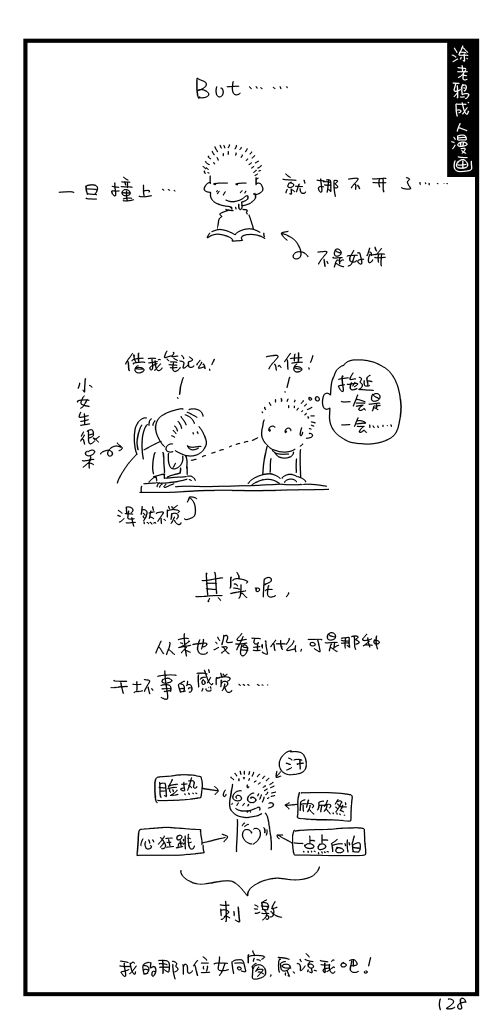 涂老鸦成人漫画
But……
一旦撞上…
就挪不开了……
不是好饼
借我笔记么!
不借!
拖延
一会是
一会……
小女生很呆
浑然不觉
其实呢,
从来也没看到什么,可是那种
干坏事的感觉……
汗
脸热
欣欣然
心狂跳
一点点后怕
刺激
我的那几位女同窗,原谅我吧!
128